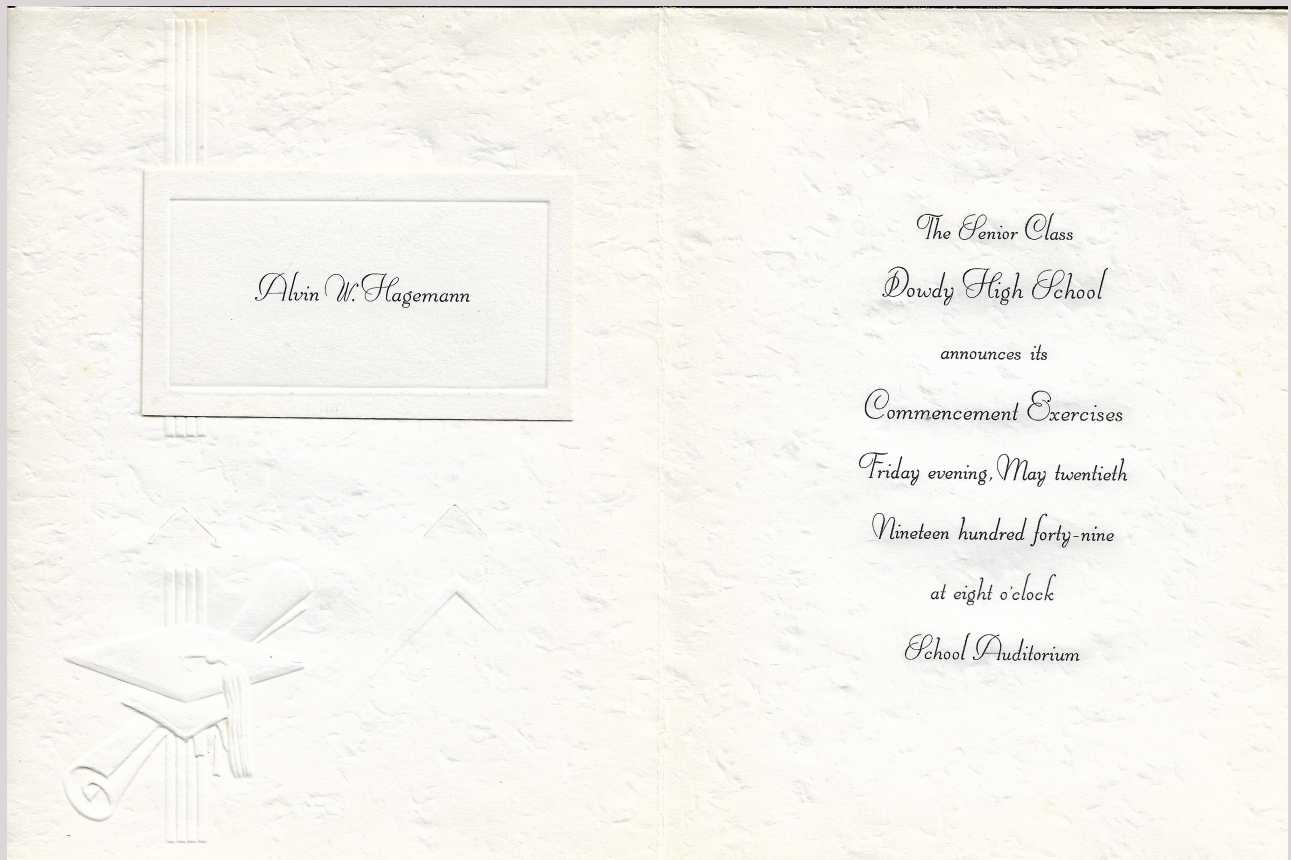 Alvin W. Hagemann
The Senior Class
Dowdy High School
announces its
Commencement Exercises
Friday evening, May twentieth
Nineteen hundred forty-nine
at eight o'clock
School Auditorium